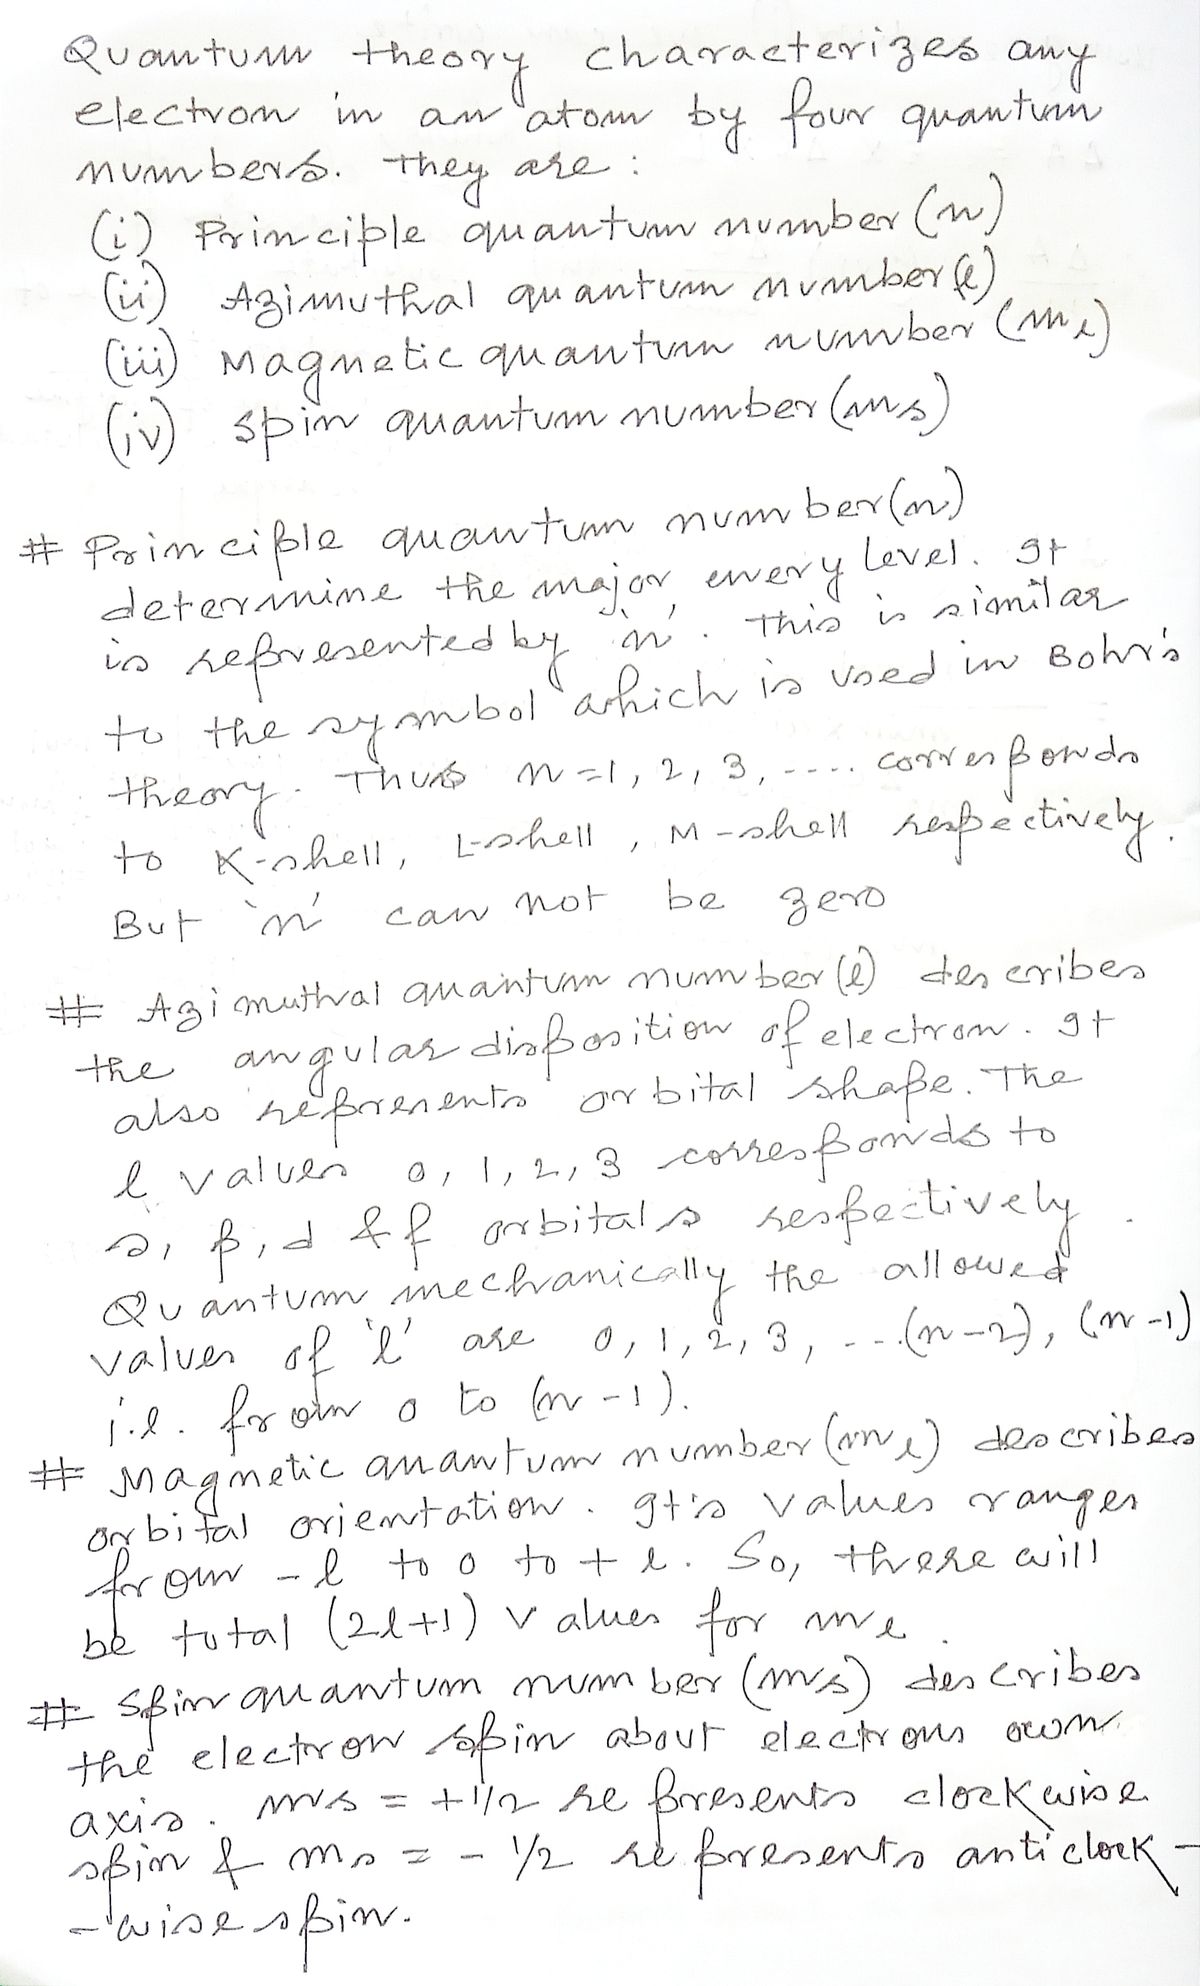 Quantum theory characterizes any
electron in an atom by four quantum
numbers. They are :
(i) Principle quantum number (n)
(ii) Azimuthal quantum number (l)
(iii) Magnetic quantum number (ml)
(iv) spin quantum number (ms)
# Principle quantum number (n)
determine the major enery level. It
is represented by 'n'. This is similar
to the symbol which is used in Bohr's
theory. Thus n=1, 2, 3, .... corresponds
to K-shell, L-shell, M-shell respectively.
But 'n' can not be zero
# Azimuthal quantum number (l) describes
the angular disposition of electron. It
also represents orbital shape. The
l values 0, 1, 2, 3 corresponds to
s, p, d & f orbitals respectively.
Quantum mechanically the allowed
values of 'l' are 0, 1, 2, 3, ...(n-2), (n-1)
i.e. from 0 to (n-1).
# Magnetic quantum number (ml) describes
orbital orientation. It's values ranges
from -l to 0 to +l. So, there will
be total (2l+1) values for ml.
# Spin quantum number (ms) describes
the electron spin about electrons own
axis. ms = +1/2 represents clockwise
spin & ms = -1/2 represents anticlock-
-wise spin.